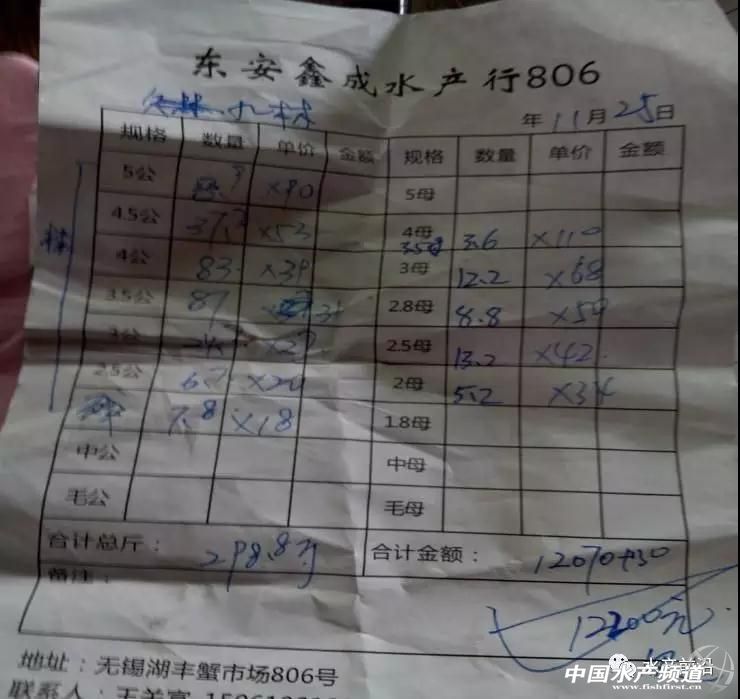 东安鑫成水产行806
年11月25日
规格 数量 单价 金额 规格 数量 单价 金额
5公 ×90 5母
4.5公 ×53 4母 3.6 ×110
4公 83 ×39 3.5母 3母 12.2 ×68
3.5公 87 2.8母 8.8 ×59
3公 2.5母 13.2 ×42
2.5公 ×20 2母 5.2 ×34
7.8 ×18 1.8母
中公 中母
毛公 毛母
合计总斤： 298.8斤 合计金额： 12070+30
备注：
元
地址：无锡湖丰蟹市场806号
联系人：
水产前沿
中国水产频道
www.fishfirst.cn